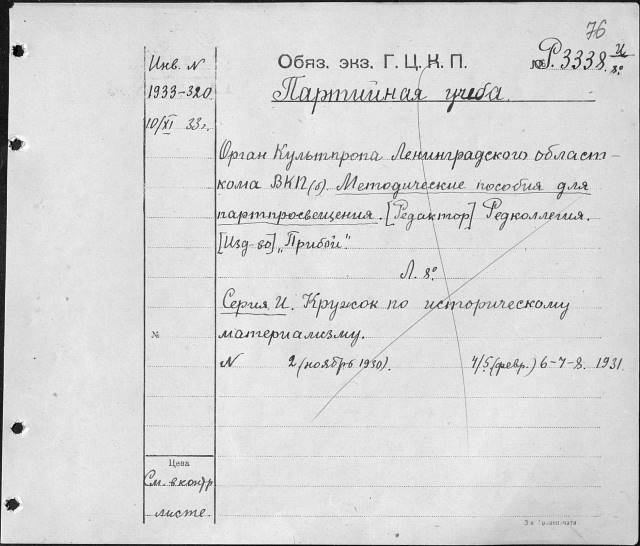 76
Инв. N
Обяз. экз. Г. Ц. К. П.
№ Р.3338 И/8º
1933-320
Партийная учеба.
10/XI 33 г.
Орган Культпропа Ленинградского област-
кома ВКП(б). Методические пособия для
партпросвещения. [Редактор] Редколлегия.
[Изд-во] „Прибой".
Л. 8º
Серия И. Кружок по историческому
материализму.
№
N 2 (ноябрь 1930) 4/5 (февр.) 6-7-8. 1931.
Цена
См. в контр.
листе.